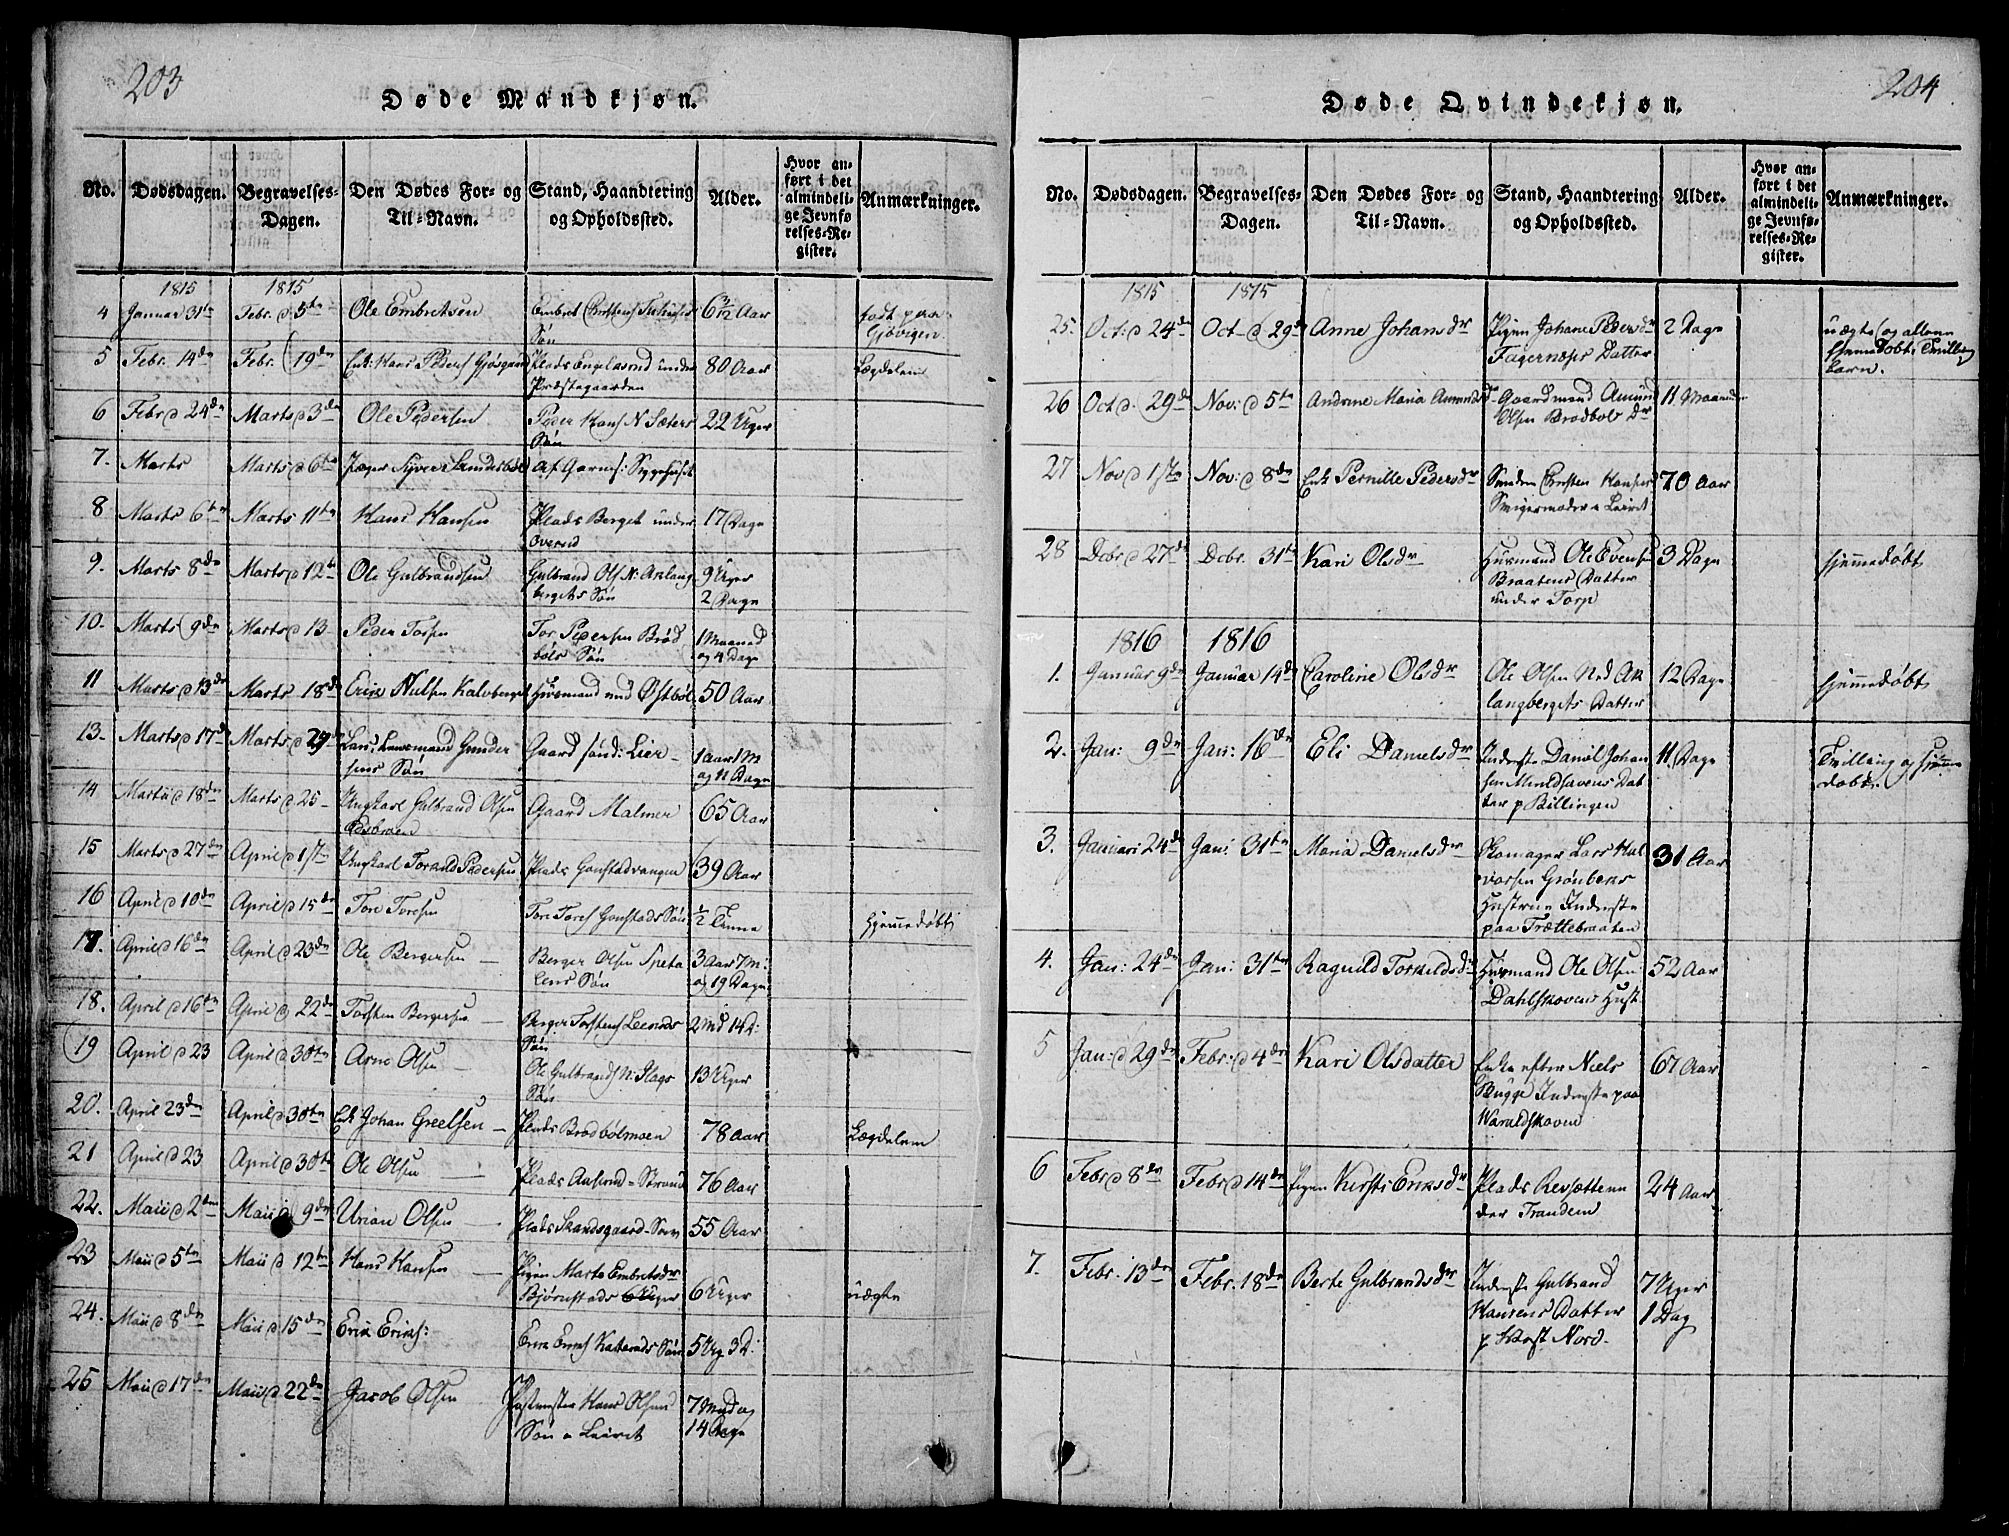 203
Døde Mandkjøn.
No. Dødsdagen. Begravelses-Dagen. Den Dødes For- og Til-Navn. Stand, Haandtering og Opholdssted. Alder. Hvor anført i det almindelige Jevnførelses-Register. Anmærkninger.
1815 1815
4 Januar 31te Febr. d 5te Ole Embretsen Embret Søn 6 3/12 Aar født paa Gjøvigen
5 Febr. 14de Febr. 19de Enk: Hans Peders Plads under Præstegaarden 80 Aar Lægdslem
6 Febr d 24de Marts d 3de Ole Pedersen Peder Hans N. Sæters Søn 22 Uger
7. Marts Marts d 6te Jæger Syver af
8 Marts 6te Marts 11te Hans Hansen Plads Berget under Overud 17 Dage
9. Marts 8de Marts d 12te Ole Gulbrandsen Gulbrand Ols N. Aklang bergets Søn 9 Uger 2 Dage
10. Marts 9de Marts d 13 Peder Torsen Tor Pedersen Brød bøls Søn 1 Maaned og 4 Dage
11 Marts d 13de Marts 18de Erik Nielsen Kalvberget Huusmand und Østbøl 50 Aar
13. Marts d 17de Marts d 29de Gunder sens Søn Gaard sønd: Lier 1 Aar 1 M og 11 Dage
14 Martii d 18de Marts d 25 Ungkarl Gulbrand Olsen Gaard Malmer 65 Aar
15 Marts d 27de April d 1ste Ungkarl Pedersen Plads Gonstadvangen 39 Aar
16 April d 10de April d 15de Tore Toresen Tore Tores Gonstads Søn 1/2 Time Hjemmedøbt
17. April d 16de April d 23de Ole Bergersen Berger Olsen Speta lens Søn 3 Aar 7 M: og 19 Dage
18. April d 16te April d 22de Torsten Bergersen Berger Torstens Leeruds Søn 2 Md 14 D:
19 April d 23 April d 30te Arne Olsen Ole Gulbrands N: Slags Søn 13 Uger
20. April 23de April d 30te Enk Johan Greelsen Plads Brødbølmoen 78 Aar Lægdslem
21 April d 23 April d 30te Ole Olsen Plads Aaserud-Strand 76 Aar
22. Maii d 2den Maii d 9de Urian Olsen Plads Skandsgaard-Sæm 55 Aar
23 Maii d 5te Maii d 12te Hans Hansen Pigen Marte Embretsdr Bjørnstads 6 Uger uægte
24. Maii d 8de Maii d 15de Erik Eriks: Erik Eriks Katteruds Søn 5 Ug 3 D.
25 Maii d 17de Maii d 22de Jacob Olsen Postmester Hans Olsens Søn a Leiret 7 Mnd og 14 Dage
204
Døde Qvindekjøn.
No. Dødsdagen. Begravelses-Dagen. Den Dødes For- og Til-Navn. Stand, Haandtering og Opholdssted. Alder. Hvor anført i det almindelige Jevnførelses-Register. Anmærkninger.
1815 1815
25. Oct: d 24de Oct d 29de Anne Johansdr Pigen Johane Pedersdr Fagernæss Datter 2 Dage uægte og allene hjemmedøbt Tvilling barn.
26 Oct d. 29de Nov: d 5te Andrine Maria Amundsdr Gaardmand Amund Olsen Brødbøl Dr 11 Maaneder
27 Nov d 1ste Nov: d 8de Enk Pernille Pedersdr Smeden Christen Hansens Svigermoder a Leiret 70 Aar
28 Dcbr d 27de Dcbr. 31te Kari Olsdr Huusmand Ole Evens Braatens Datter under Torp 3 Dage hjemmedøbt
1816 1816
1. Januar 9de Januar 14de Caroline Olsdr Ole Olsen Ned Ak langbergets Datter 12 Dage hjemmedøbt
2. Jan: 9de Jan: 16de Eli Danielsdr Inderste Daniel Johan sen Mindshavens Dat ter p Billingen 11 Dage Tvilling og hjemme døbt
3. Januari 24de Jan: 31te Maria Danielsdr Skomager Lars Hal vorsen Grønbeks Hustrue Inderste paa Trættebraaten 31 Aar
4. Jan: 24de Jan: 31te Ragnild Torkildsdr Huusmand Ole Olsen Dahlskovens Hust. 52 Aar
5 Jan: d 29de Febr: d 4de Kari Olsdatter Enke efter Niels Bugge Inderste paa Waraldskoven 67 Aar
6 Febr d 8de Febr d 14de Pigen Kirsti Eriksdr Plads Revsætten un der Trandem 24 Aar
7. Febr. 13de Febr. 18de Berte Gulbrandsdr Inderste Gulbrand Hansens Datter p Horst Nord. 7 Uger 1 Dag